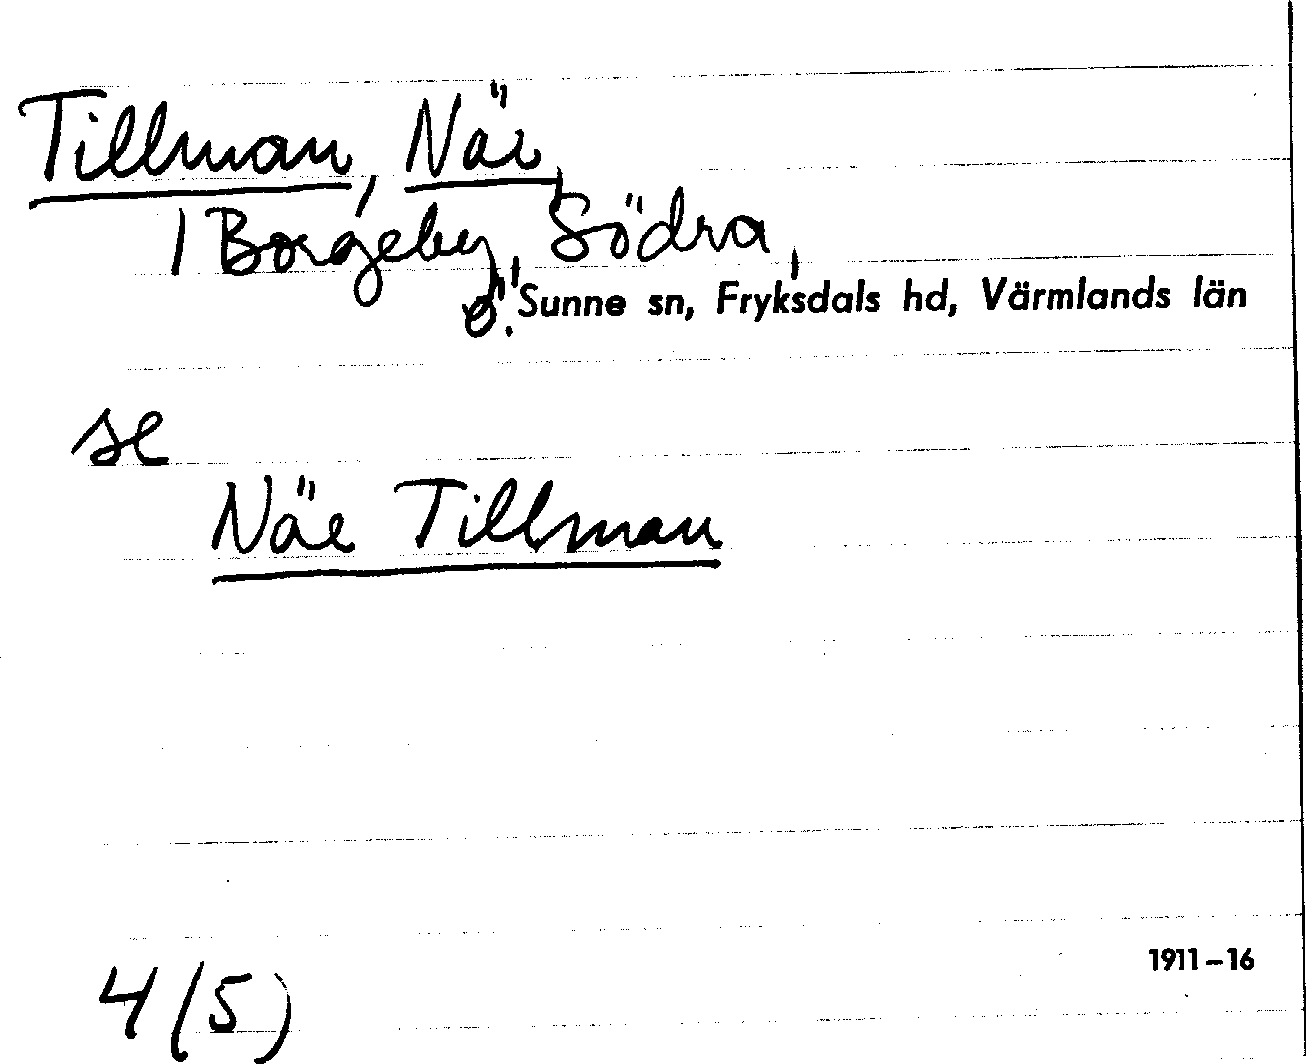 Tillman, Näe,
/ Borgeby, Södra,
ö. Sunne sn, Fryksdals hd, Värmlands län
se
Näe Tillman
1911–16
4 (5)